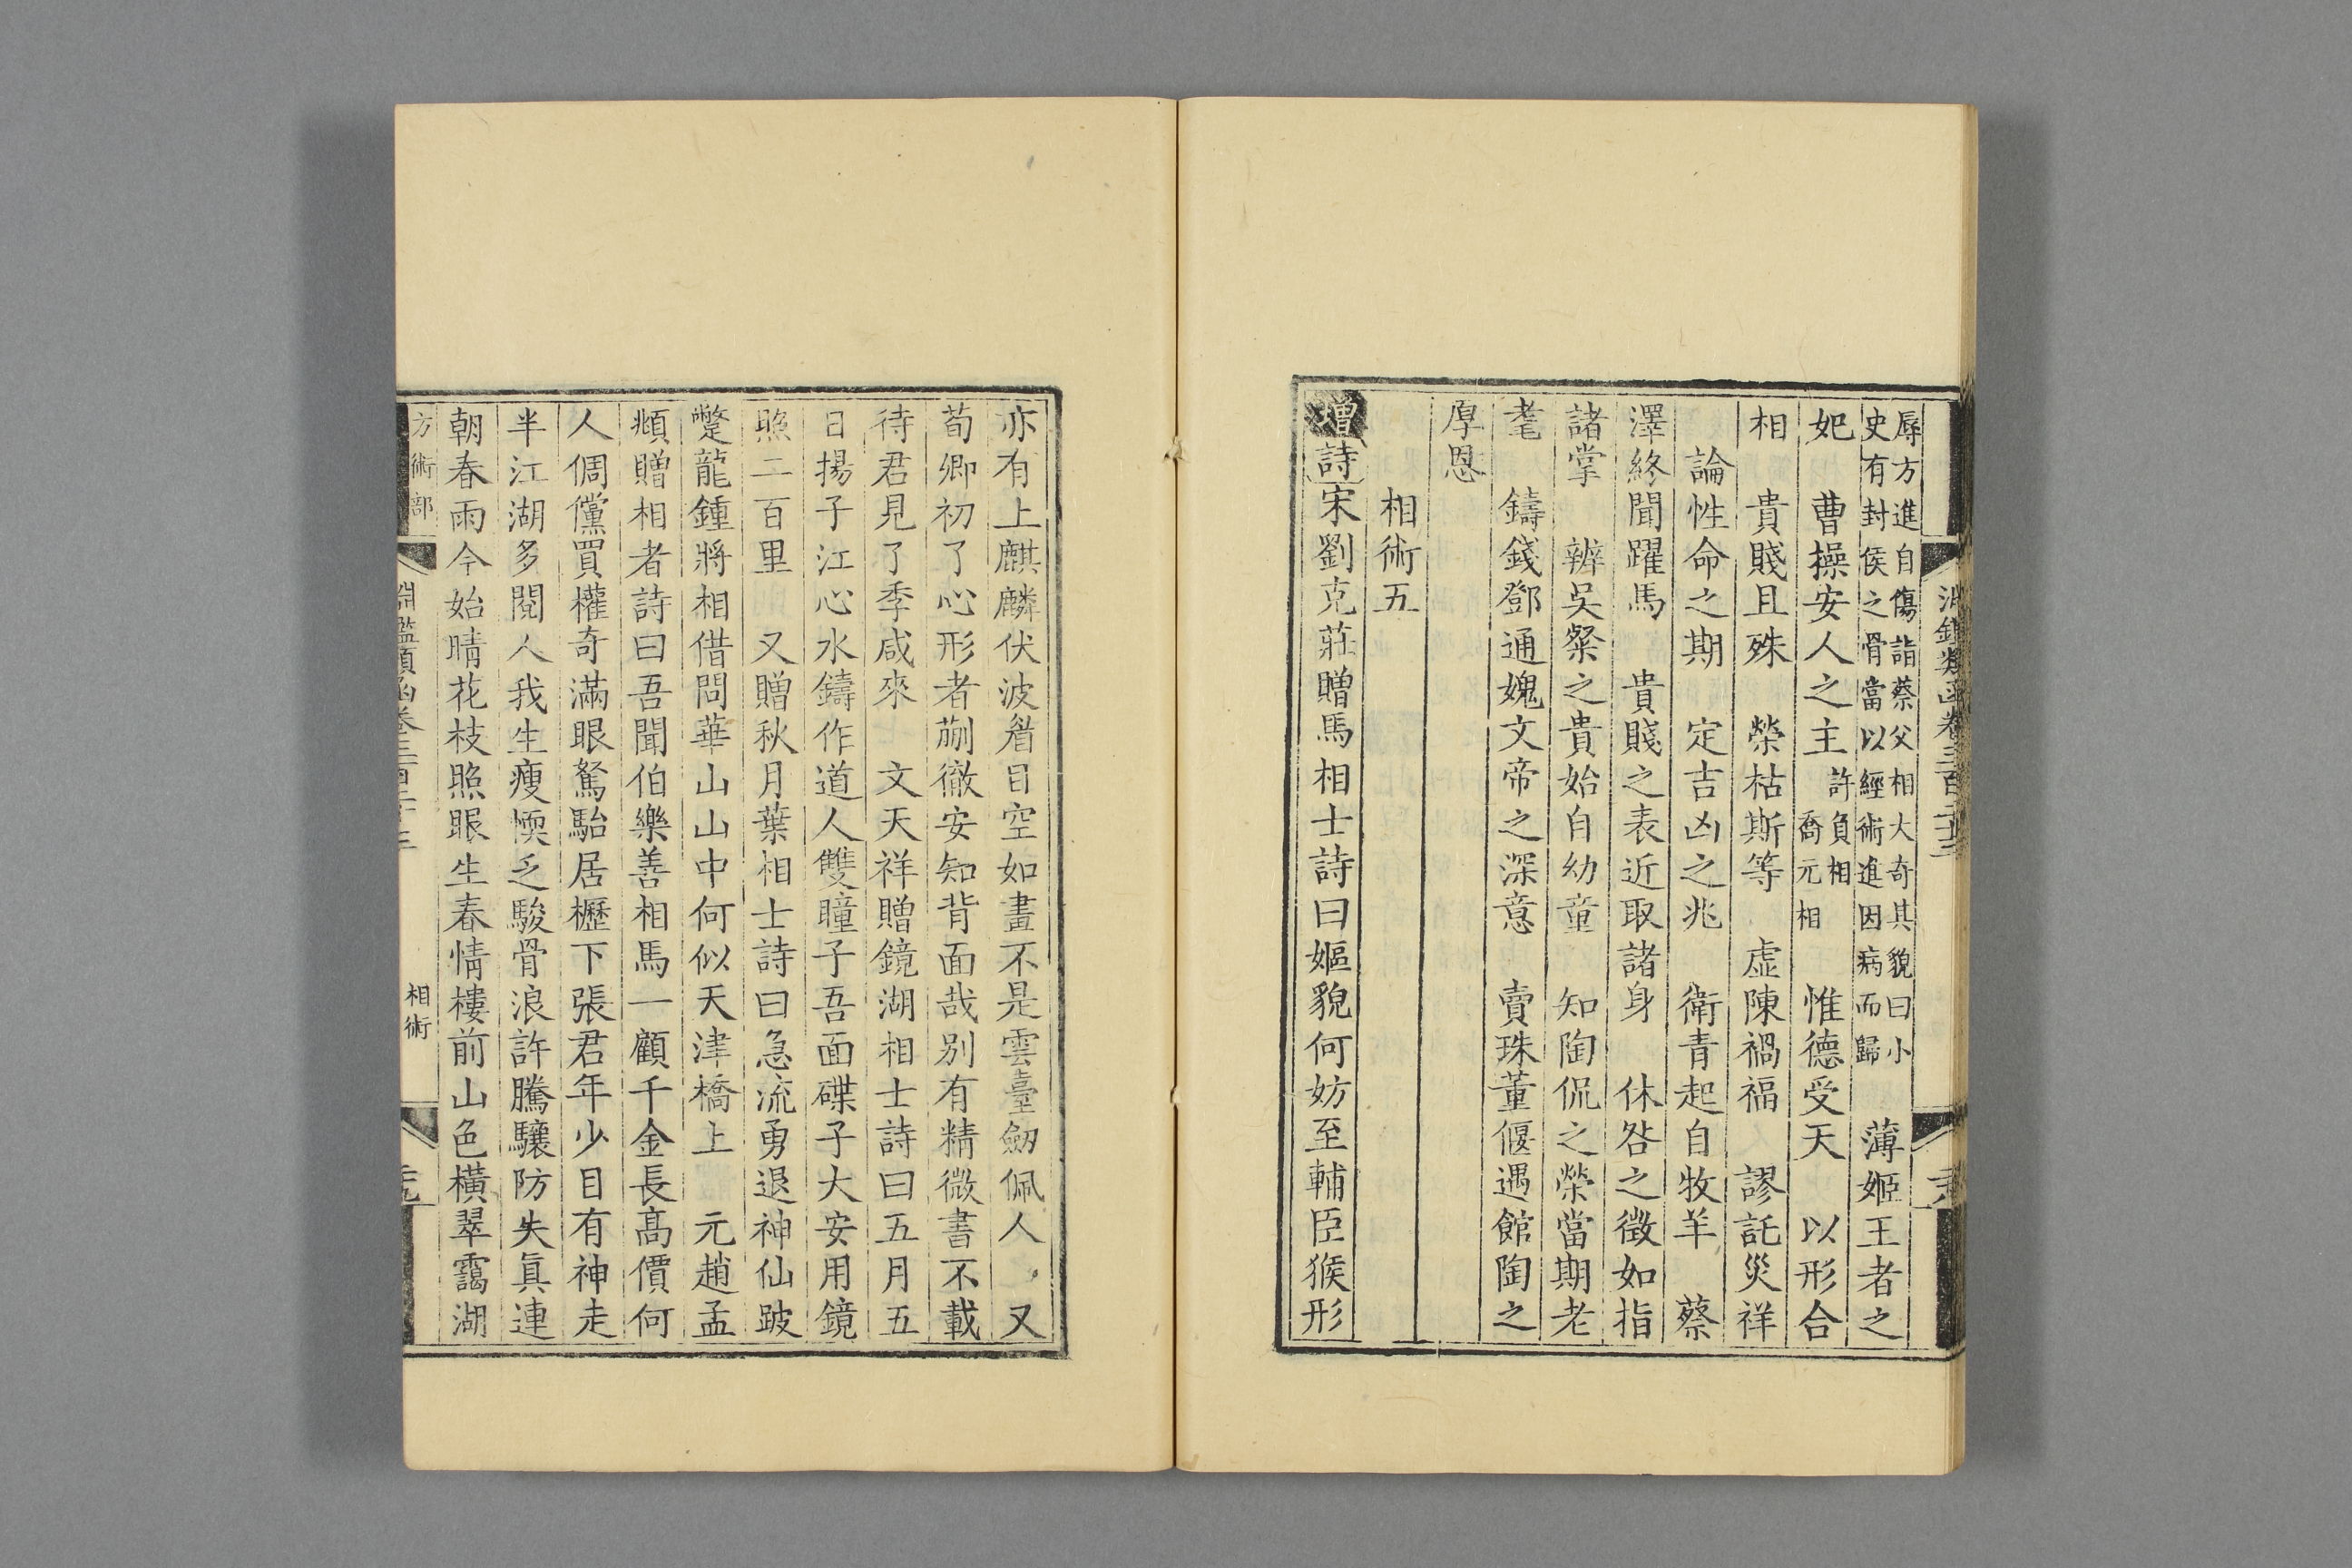 淵鑑類函卷三百二十三
辱方進自傷詣蔡父相大奇其貌曰小
史有封侯之骨當以經術進因病而歸
薄姬王者之
妃　曹操安人之主
許負相
喬元相
惟德受天　以形合
相　貴賤且殊　榮枯斯等　虛陳禍福　謬託災祥
論性命之期　定吉凶之兆　衛青起自牧羊　蔡
澤終聞躍馬　貴賤之表近取諸身　休咎之徵如指
諸掌　辨吳粲之貴始自幼童　知陶侃之榮當期老
耄　鑄錢鄧通媿文帝之深意　賣珠董偃遇館陶之
厚恩
相術五
增詩宋劉克莊贈馬相士詩曰嫗貌何妨至輔臣猴形
亦有上麒麟伏波眉目空如畫不是雲臺劒佩人　又
荀卿初了心形者蒯徹安知背面哉别有精微書不載
待君見了季咸來　文天祥贈鏡湖相士詩曰五月五
日揚子江心水鑄作道人雙瞳子吾面碟子大安用鏡
照二百里　又贈秋月葉相士詩曰急流勇退神仙跛
躄龍鍾將相借問華山山中何似天津橋上　元趙孟
頫贈相者詩曰吾聞伯樂善相馬一顧千金長高價何
人倜儻買權奇滿眼駑駘居櫪下張君年少目有神走
半江湖多閱人我生瘦愞乏駿骨浪許騰驤防失眞連
朝春雨今始晴花枝照眼生春情樓前山色橫翠靄湖
方術部
淵鑑類函卷三百二十三
相術